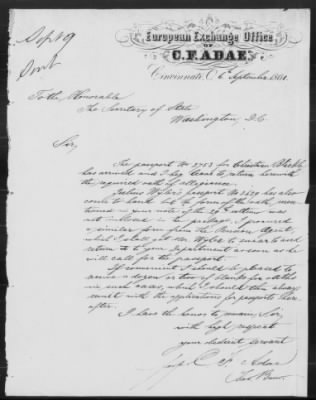 Sep 19
European Exchange Office
OF
C. F. ADAE,
Cincinnati, O. 6th September 1861.
To the Honorable
The Secretary of State
Washington, D.C.
Sir,
The passport No 2753 for Christian
has arrived and I beg leave to return herewith
the required oath of allegiance.
Julius passport No 2629 has also
come to hand but the form of the oath, men-
tioned in your note of the 29th ultimo was
not inclosed in the package. I procured
a similar form from the Pension Agent,
which I shall get Mr. to swear to and
return it to your department as soon as he
will call for the passport.
If convenient I should be pleased to
receive a dozen or two of blanks for oaths
in such cases, which I should then always
send with the applications for passports here-
after.
I have the honor to remain, Sir,
with high respect
your obedient servant
C. F. Adae